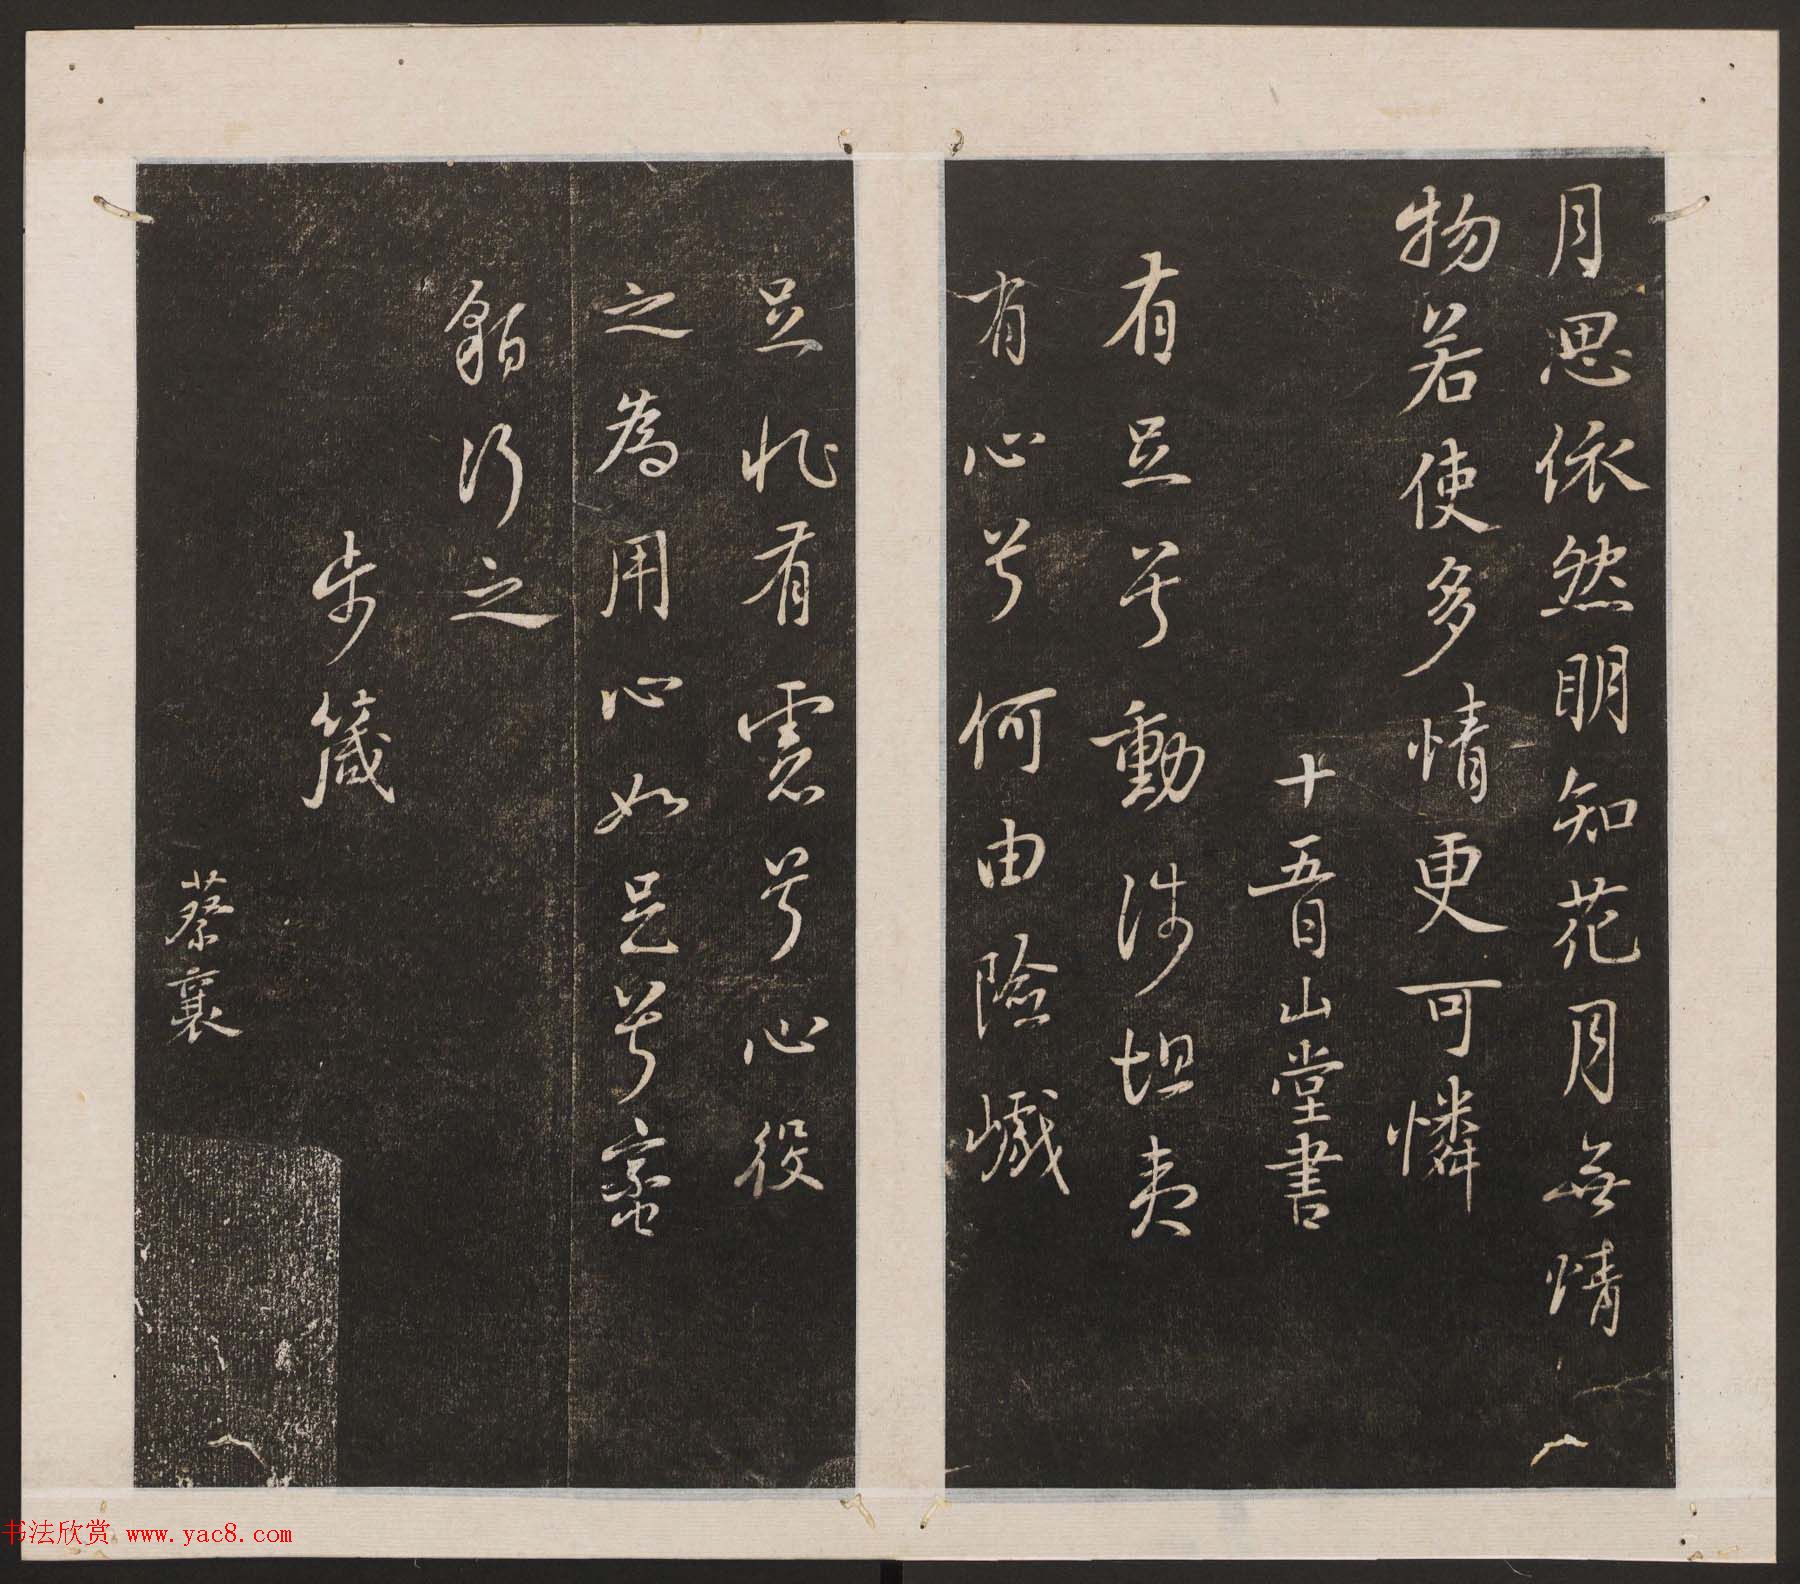 月思依然明知花月無情
物若使多情更可憐
十五日山堂書
有足兮動涉坦夷
有心兮何由險巇
足非有慮兮心役
之為用心如是兮蠻
貊行之
步箴
蔡襄
书法欣赏 www.yac8.com